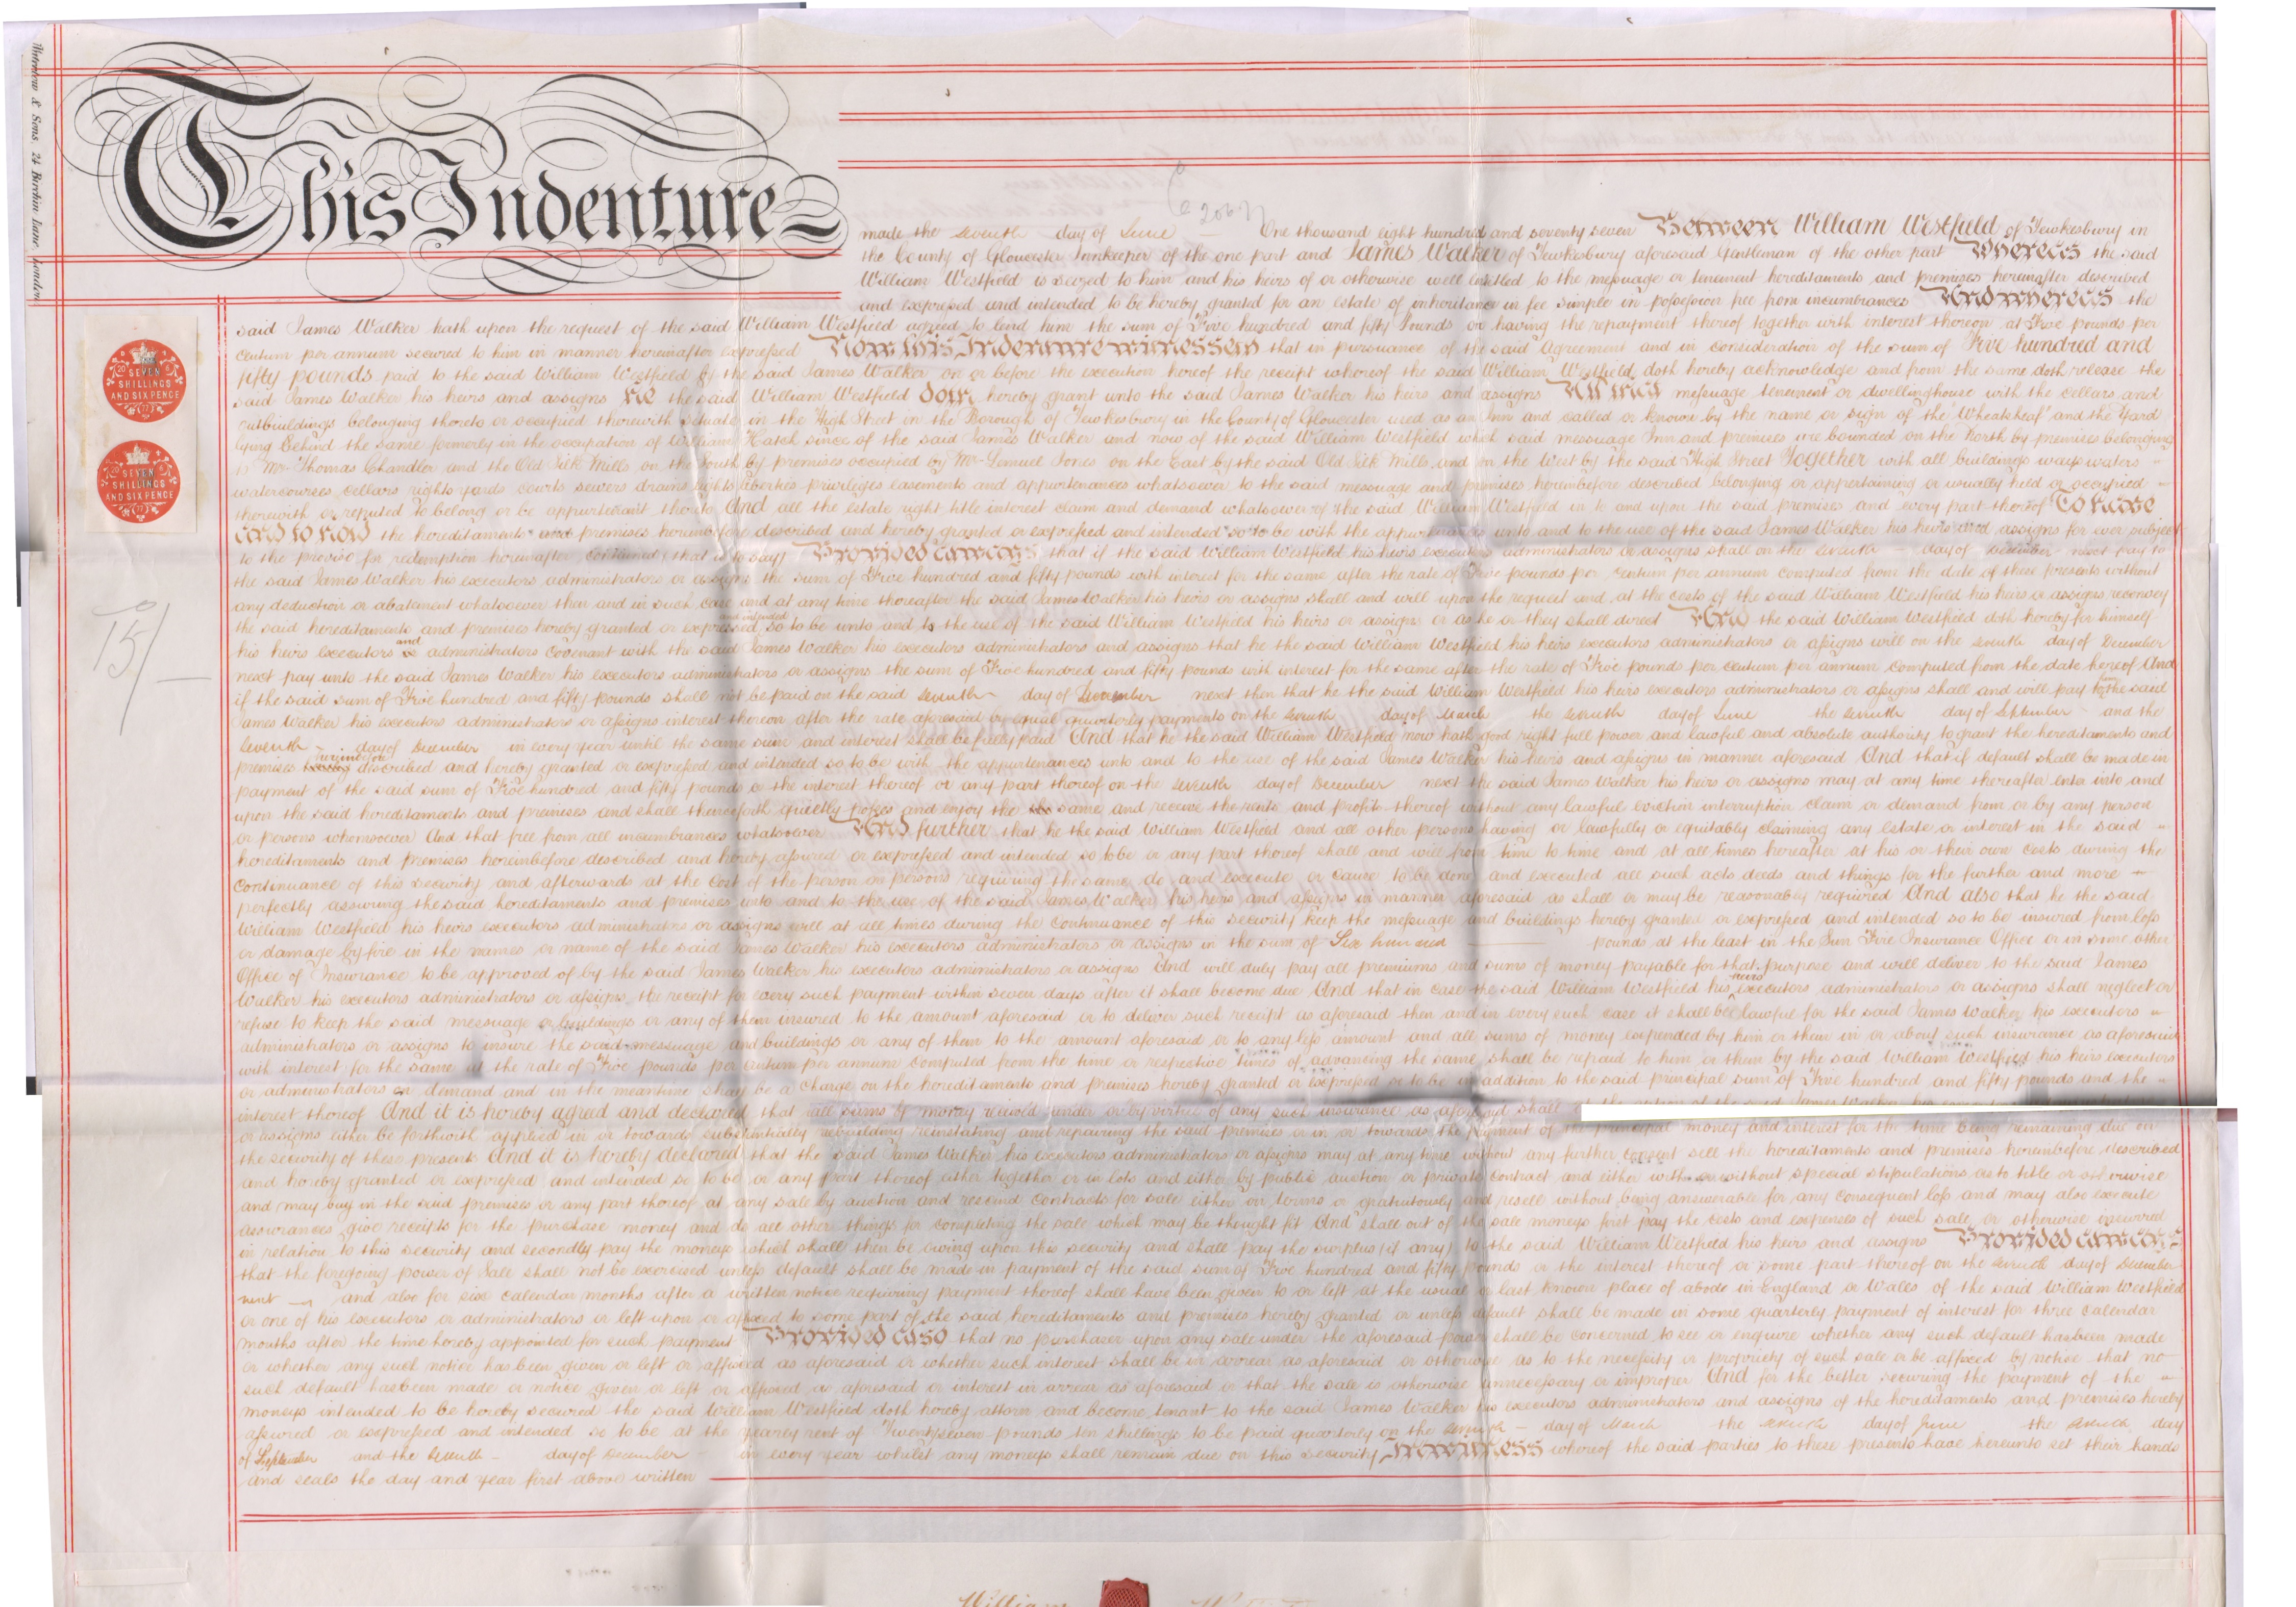 Waterlow & Sons, 24 Birchin Lane, London
This Indenture
made the seventh day of June One thousand eight hundred and seventy seven Between William Westfield of Tewkesbury in
the County of Gloucester Innkeeper of the one part and James Walker of Tewkesbury aforesaid Gentleman of the other part Whereas the said
William Westfield is seized to him and his heirs of or otherwise well entitled to the messuage or tenement hereditaments and premises hereinafter described
and expressed and intended to be hereby granted for an estate of inheritance in fee simple in possession free from incumbrances And whereas the
said James Walker hath upon the request of the said William Westfield agreed to lend him the sum of Five hundred and fifty Pounds on having the repayment thereof together with interest thereon at Five pounds per
centum per annum secured to him in manner hereinafter expressed Now this Indenture witnesseth that in pursuance of the said Agreement and in consideration of the sum of Five hundred and
fifty pounds paid to the said William Westfield by the said James Walker on or before the execution hereof the receipt whereof the said William Westfield doth hereby acknowledge and from the same doth release the
said James Walker his heirs and assigns He the said William Westfield doth hereby grant unto the said James Walker his heirs and assigns All that messuage tenement or dwellinghouse with the cellars and
outbuildings belonging thereto or occupied therewith situate in the High Street in the Borough of Tewkesbury in the County of Gloucester used as an Inn and called or known by the name or sign of the "Wheatsheaf" and the Yard
lying behind the same formerly in the occupation of William Hatch since of the said James Walker and now of the said William Westfield which said messuage Inn and premises are bounded on the North by premises belonging
to Mr Thomas Chandler and the Old Silk Mills on the South by premises occupied by Mr Lemuel Jones on the East by the said Old Silk Mills and on the West by the said High Street Together with all buildings ways waters
watercourses cellars rights yards courts sewers drains lights liberties privileges easements and appurtenances whatsoever to the said messuage and premises hereinbefore described belonging or appertaining or usually held or occupied
therewith or reputed to belong or be appurtenant thereto And all the estate right title interest claim and demand whatsoever of the said William Westfield in to and upon the said premises and every part thereof To have
and to hold the hereditaments and premises hereinbefore described and hereby granted or expressed and intended so to be with the appurtenances unto and to the use of the said James Walker his heirs and assigns for ever subject
to the proviso for redemption hereinafter contained (that is to say) Provided always that if the said William Westfield his heirs executors administrators or assigns shall on the seventh day of December next pay to
the said James Walker his executors administrators or assigns the sum of Five hundred and fifty pounds with interest for the same after the rate of Five pounds per centum per annum computed from the date of these presents without
any deduction or abatement whatsoever then and in such case and at any time thereafter the said James Walker his heirs or assigns shall and will upon the request and at the costs of the said William Westfield his heirs or assigns reconvey
the said hereditaments and premises hereby granted or expressed and intended so to be unto and to the use of the said William Westfield his heirs or assigns or as he or they shall direct And the said William Westfield doth hereby for himself
his heirs executors and administrators Covenant with the said James Walker his executors administrators and assigns that he the said William Westfield his heirs executors administrators or assigns will on the seventh day of December
next pay unto the said James Walker his executors administrators or assigns the sum of Five hundred and fifty pounds with interest for the same after the rate of Five pounds per centum per annum computed from the date hereof And
if the said sum of Five hundred and fifty pounds shall not be paid on the said seventh day of December next then that he the said William Westfield his heirs executors administrators or assigns shall and will pay to the said
James Walker his executors administrators or assigns interest thereon after the rate aforesaid by equal quarterly payments on the seventh day of March the seventh day of June the seventh day of September and the
seventh day of December in every year until the same sum and interest shall be fully paid And that he the said William Westfield now hath good right full power and lawful and absolute authority to grant the hereditaments and
premises hereinbefore described and hereby granted or expressed and intended so to be with the appurtenances unto and to the use of the said James Walker his heirs and assigns in manner aforesaid And that if default shall be made in
payment of the said sum of Five hundred and fifty pounds or the interest thereof or any part thereof on the seventh day of December next the said James Walker his heirs or assigns may at any time thereafter enter into and
upon the said hereditaments and premises and shall thenceforth quietly possess and enjoy the same and receive the rents and profits thereof without any lawful eviction interruption claim or demand from or by any person
or persons whomsoever And that free from all incumbrances whatsoever And further that he the said William Westfield and all other persons having or lawfully or equitably claiming any estate or interest in the said
hereditaments and premises hereinbefore described and hereby assured or expressed and intended so to be or any part thereof shall and will from time to time and at all times hereafter at his or their own costs during the
continuance of this security and afterwards at the cost of the person or persons requiring the same do and execute or cause to be done and executed all such acts deeds and things for the further and more
perfectly assuring the said hereditaments and premises unto and to the use of the said James Walker his heirs and assigns in manner aforesaid as shall or may be reasonably required And also that he the said
William Westfield his heirs executors administrators or assigns will at all times during the continuance of this security keep the messuage and buildings hereby granted or expressed and intended so to be insured from loss
or damage by fire in the names or name of the said James Walker his executors administrators or assigns in the sum of Six hundred pounds at the least in the Sun Fire Insurance Office or in some other
Office of Insurance to be approved of by the said James Walker his executors administrators or assigns And will duly pay all premiums and sums of money payable for that purpose and will deliver to the said James
Walker his executors administrators or assigns the receipt for every such payment within seven days after it shall become due And that in case the said William Westfield his heirs executors administrators or assigns shall neglect or
refuse to keep the said messuage or buildings or any of them insured to the amount aforesaid or to deliver such receipt as aforesaid then and in every such case it shall be lawful for the said James Walker his executors
administrators or assigns to insure the said messuage and buildings or any of them to the amount aforesaid or to any less amount and all sums of money expended by him or them in or about such insurance as aforesaid
with interest for the same at the rate of Five pounds per centum per annum computed from the time or respective times of advancing the same shall be repaid to him or them by the said William Westfield his heirs executors
or administrators on demand and in the meantime shall be a charge on the hereditaments and premises hereby granted or expressed so to be in addition to the said principal sum of Five hundred and fifty pounds and the
interest thereof And it is hereby agreed and declared that all sums of money received under or by virtue of any such insurance as aforesaid shall
or assigns either be forthwith applied in or towards substantially rebuilding reinstating and repairing the said premises or in or towards the payment of the principal money and interest for the time being remaining due on
the security of these presents And it is hereby declared that the said James Walker his executors administrators or assigns may at any time without any further consent sell the hereditaments and premises hereinbefore described
and hereby granted or expressed and intended so to be or any part thereof either together or in lots and either by public auction or private contract and either with or without special stipulations as to title or otherwise
and may buy in the said premises or any part thereof at any sale by auction and rescind contracts for sale either on terms or gratuitously and resell without being answerable for any consequent loss and may also execute
assurances give receipts for the purchase money and do all other things for completing the sale which may be thought fit And shall out of the sale moneys first pay the costs and expenses of such sale or otherwise incurred
in relation to this security and secondly pay the moneys which shall then be owing upon this security and shall pay the surplus (if any) to the said William Westfield his heirs and assigns Provided always
that the foregoing power of Sale shall not be exercised unless default shall be made in payment of the said sum of Five hundred and fifty pounds or the interest thereof or some part thereof on the seventh day of December
next and also for six calendar months after a written notice requiring payment thereof shall have been given to or left at the usual or last known place of abode in England or Wales of the said William Westfield
or one of his executors or administrators or left upon or affixed to some part of the said hereditaments and premises hereby granted or unless default shall be made in some quarterly payment of interest for three calendar
months after the time hereby appointed for such payment Provided also that no purchaser upon any sale under the aforesaid power shall be concerned to see or enquire whether any such default has been made
or whether any such notice has been given or left or affixed as aforesaid or whether such interest shall be in arrear as aforesaid or otherwise as to the necessity or propriety of such sale or be affected by notice that no
such default has been made or notice given or left or affixed as aforesaid or interest in arrear as aforesaid or that the sale is otherwise unnecessary or improper And for the better securing the payment of the
moneys intended to be hereby secured the said William Westfield doth hereby attorn and become tenant to the said James Walker his executors administrators and assigns of the hereditaments and premises hereby
assured or expressed and intended so to be at the yearly rent of Twentyseven pounds ten shillings to be paid quarterly on the seventh day of March the seventh day of June the seventh day
of September and the seventh day of December in every year whilst any moneys shall remain due on this security In witness whereof the said parties to these presents have hereunto set their hands
and seals the day and year first above written
SEVEN
SHILLINGS
AND SIX PENCE
SEVEN
SHILLINGS
AND SIX PENCE
15/-
William